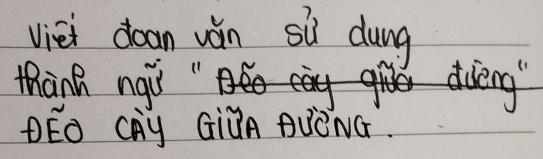 Viết đoạn văn sử dung
thành ngữ " Đẽo cày giữa đường"
ĐẼO CÀY GIỮA ĐƯỜNG.